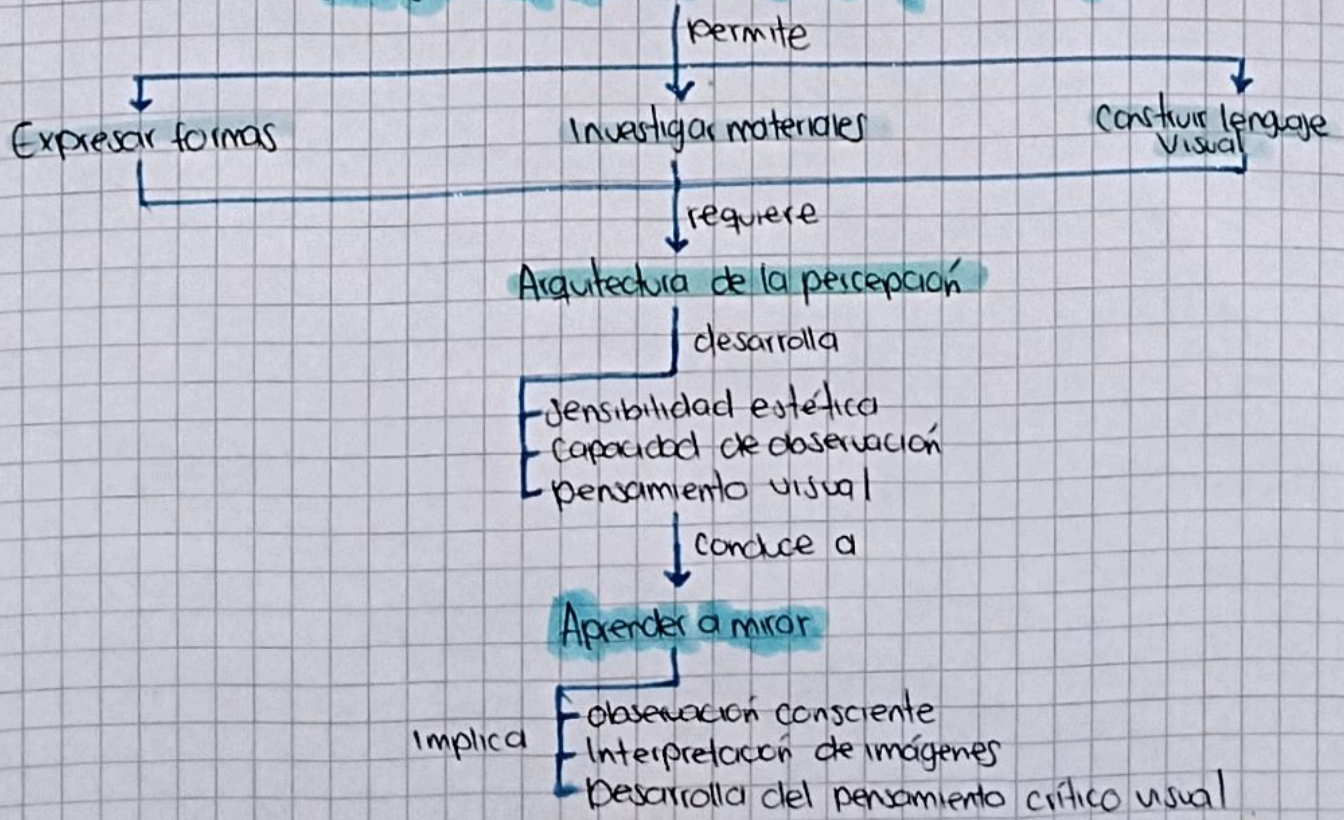 permite
Expresar formas
Investigar materiales
Construir lenguaje
visual
requiere
Arquitectura de la percepción
desarrolla
Sensibilidad estética
Capacidad de observación
pensamiento visual
conduce a
Aprender a mirar
implica
observación consciente
Interpretación de imágenes
Desarrolla del pensamiento crítico visual